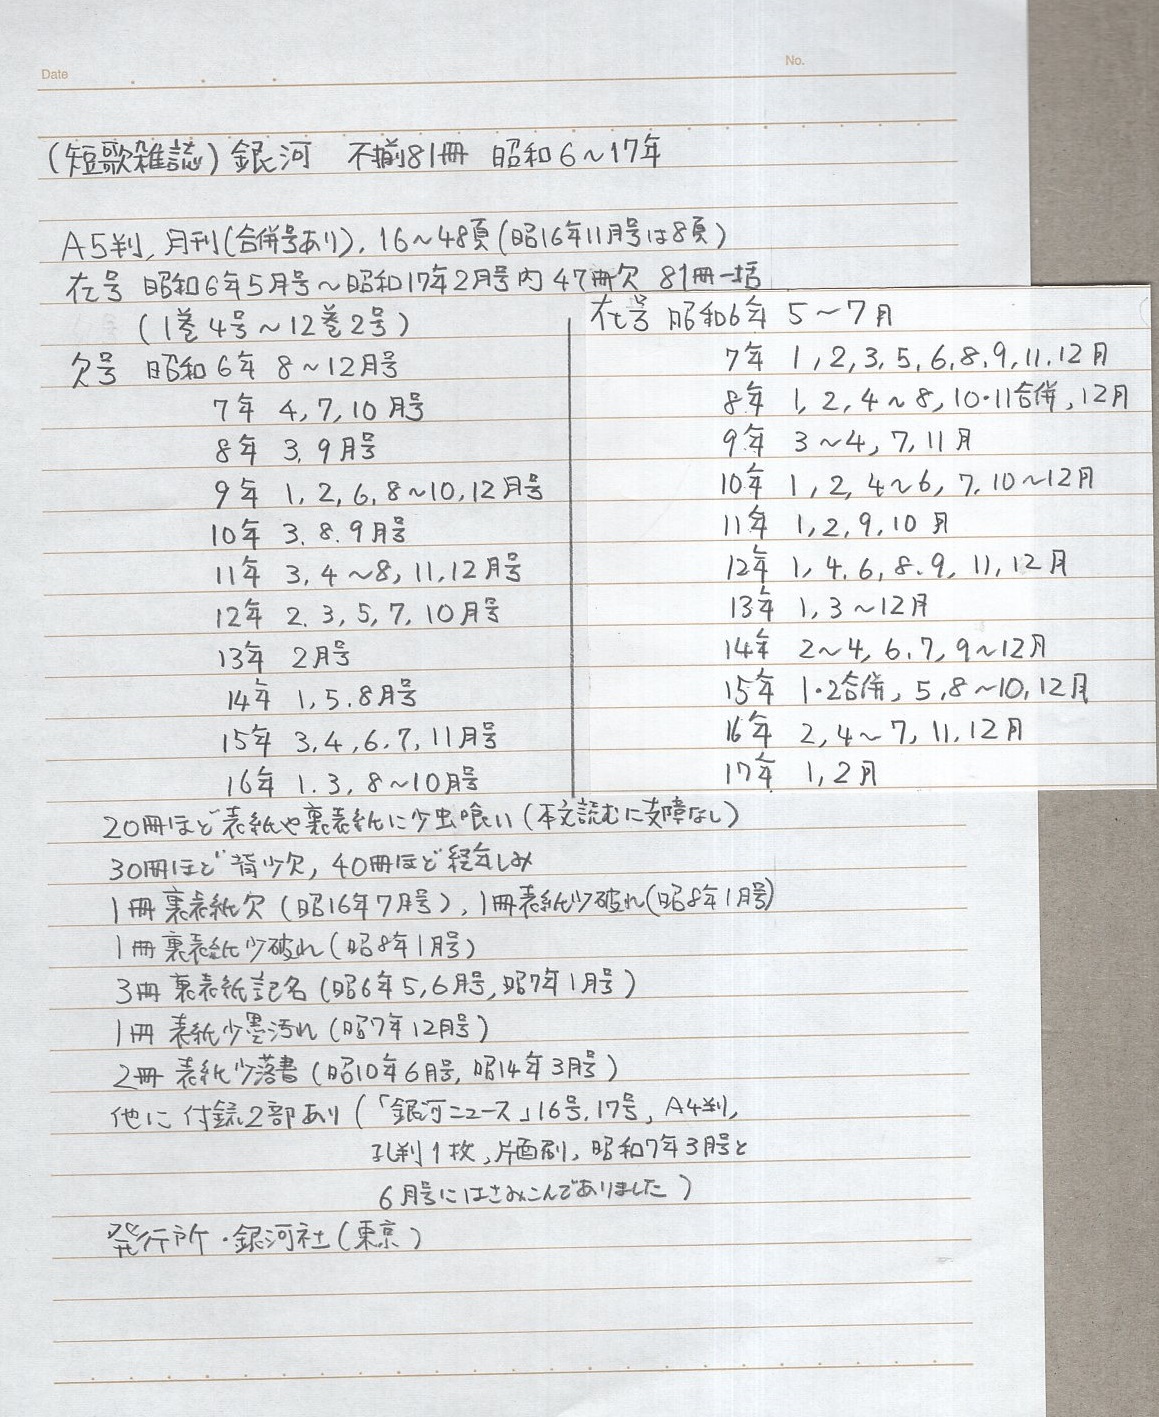 Date
No.
(短歌雑誌) 銀河 不揃81冊 昭和6〜17年
A5判, 月刊(合併号あり), 16〜48頁(昭16年11月号は8頁)
在号 昭和6年5月号〜昭和17年2月号内 47冊欠 81冊一括
(1巻4号〜12巻2号)
欠号 昭和6年 8〜12月号
7年 4, 7, 10月号
8年 3, 9月号
9年 1, 2, 6, 8〜10, 12月号
10年 3. 8. 9月号
11年 3, 4〜8, 11, 12月号
12年 2. 3, 5, 7, 10月号
13年 2月号
14年 1, 5. 8月号
15年 3, 4, 6. 7, 11月号
16年 1. 3, 8〜10月号
在号 昭和6年 5〜7月
7年 1, 2, 3, 5, 6, 8, 9, 11, 12月
8年 1, 2, 4〜8, 10・11合併, 12月
9年 3〜4, 7, 11月
10年 1, 2, 4〜6, 7, 10〜12月
11年 1, 2, 9, 10月
12年 1, 4. 6, 8. 9, 11, 12月
13年 1, 3〜12月
14年 2〜4, 6. 7, 9〜12月
15年 1・2合併, 5, 8〜10, 12月
16年 2, 4〜7, 11, 12月
17年 1, 2月
20冊ほど表紙や裏表紙に少虫喰い (本文読むに支障なし)
30冊ほど背少欠, 40冊ほど経年しみ
1冊裏表紙欠 (昭16年7月号), 1冊表紙少破れ(昭8年1月号)
1冊裏表紙少破れ (昭8年1月号)
3冊裏表紙記名 (昭6年5, 6月号, 昭7年1月号)
1冊 表紙少墨汚れ (昭7年12月号)
2冊 表紙少落書 (昭10年6月号, 昭14年3月号)
他に付録2部あり (「銀河ニュース」16号. 17号, A4判,
孔判1枚, 片面刷, 昭和7年3月号と
6月号にはさみこんでありました)
発行所・銀河社 (東京)